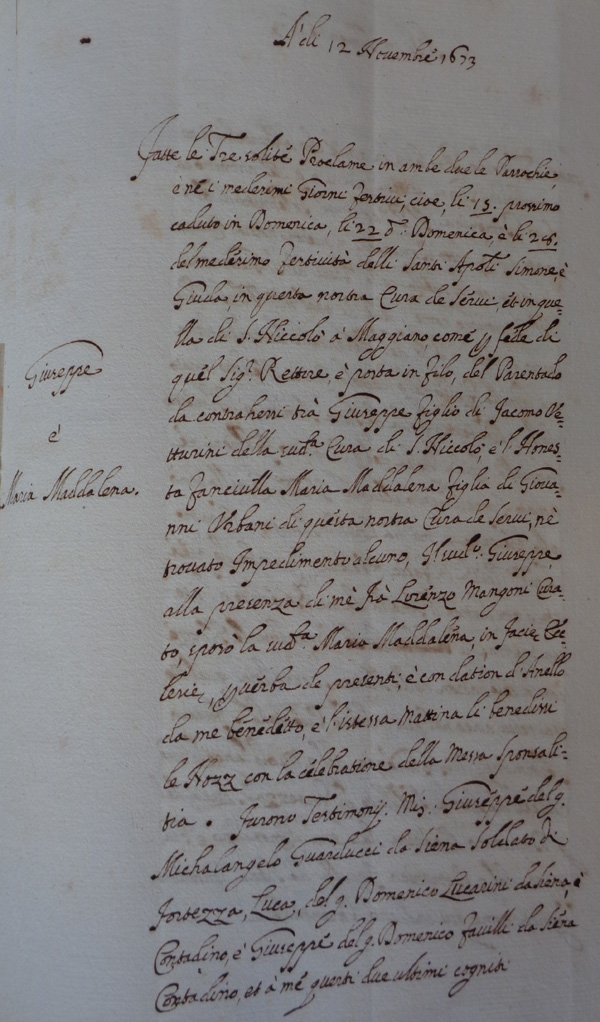 A' di 12 Novembre 1673
Fatte le Tre solite Proclame in ambe due le Parrochie,
e ne i medesimi Giorni festivi, cioe, li 15. prossimo
caduto in Domenica, li 22 d.º Domenica, è li 28.
del medesimo festività delli Santi Apoli Simone, è
Giuda, in questa nostra Cura de Servi, et in que=
lla di S. Niccolò à Maggiano, come p fede di
quel Sig.r Rettore, è posta in filo, del Parentado
da contrahersi trà Giuseppe figlio di Jacomo Ve=
tturini della sud.ta Cura di S. Niccolò, è l'Hones=
Giuseppe
è
Maria Maddalena.
ta fanciulla Maria Maddalena figlia di Giova=
nni Urbani di questa nostra Cura de Servi, nè
trovato Impedimento alcuno, Il sud.o Giuseppe,
alla presenza di mè frà Lorenzo Mangoni Cura=
to, sposò la sud.ta Maria Maddalena, in facie Ecc=
lesie, p verba de presenti, è con dation d'Anello
da me benedetto, è l'istessa mattina li benedissi
le Nozz con la celebratione della Messa sponsali=
tia. Furono Testimonij. Mis. Giuseppe del q.
Michalangelo Guarducci da Siena Soldato di
Fortezza, Luca, del q. Domenico Lucarini da Siena, è
Contadino, è Giuseppe del q. Domenico Favilli da Siena
Contadino, et à mé questi due ultimi cogniti